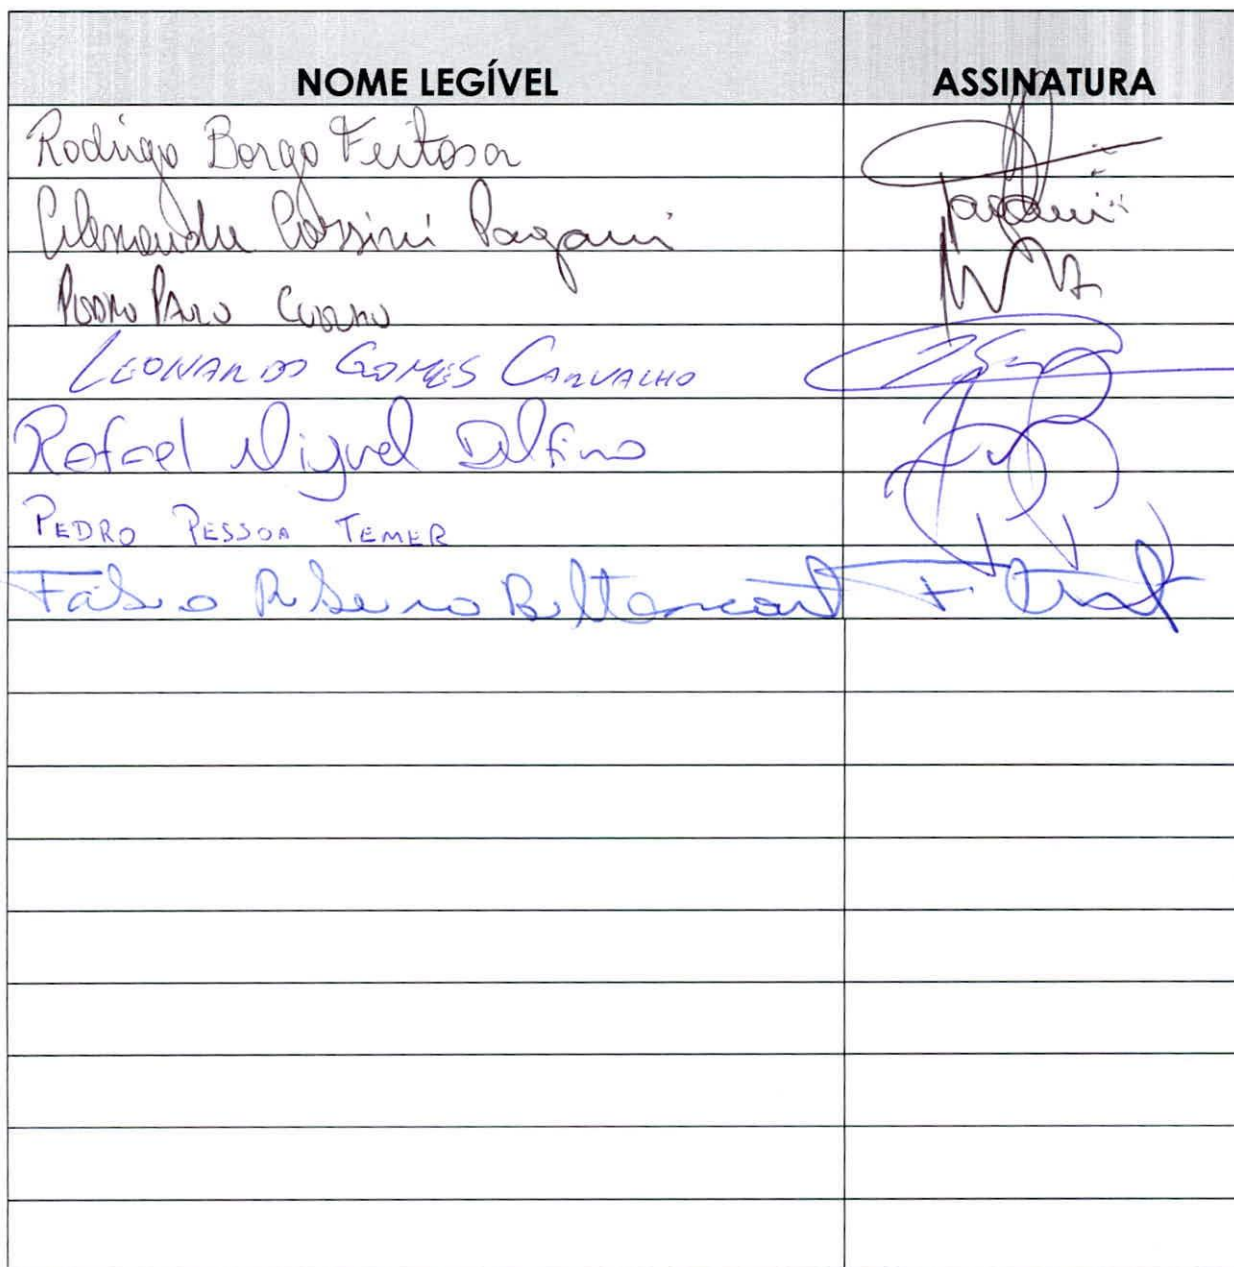 NOME LEGÍVEL ASSINATURA
Rodrigo Borgo Feitosa
Alexandre Cassini Pagani Pagani
Pedro Paulo Coelho
LEONARDO GOMES CARVALHO
Rafael Miguel Delfino
PEDRO PESSOA TEMER
Fábio Ribeiro Bittencourt